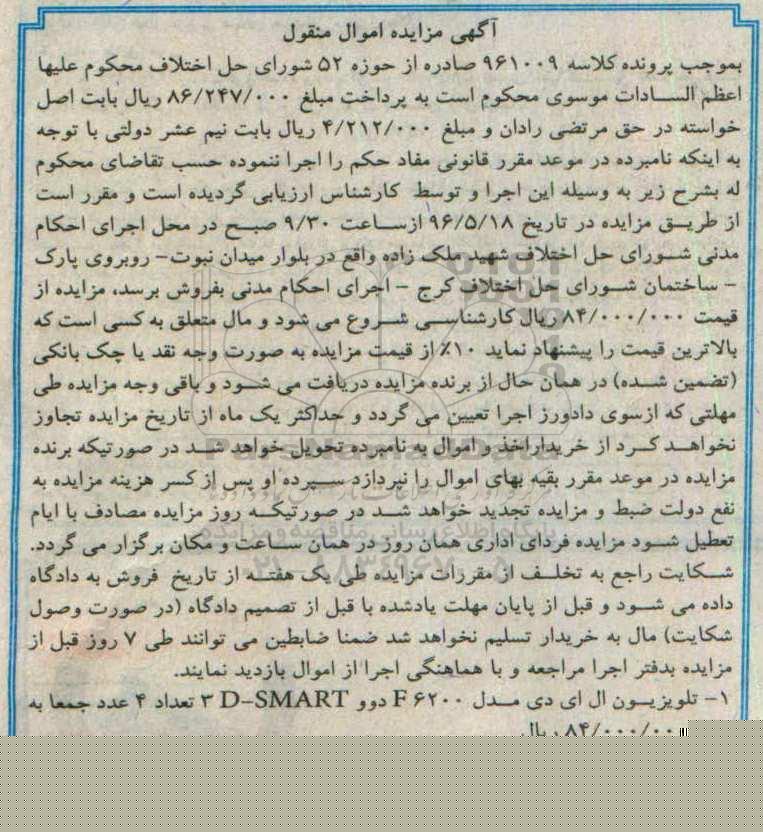 آگهی مزایده اموال منقول
بموجب پرونده کلاسه ۹۶۱۰۰۹ صادره از حوزه ۵۲ شورای حل اختلاف محکوم علیها
اعظم السادات موسوی محکوم است به پرداخت مبلغ ۸۶/۲۴۷/۰۰۰ ریال بابت اصل
خواسته در حق مرتضی رادان و مبلغ ۴/۲۱۲/۰۰۰ ریال بابت نیم عشر دولتی با توجه
به اینکه نامبرده در موعد مقرر قانونی مفاد حکم را اجرا ننموده حسب تقاضای محکوم
له بشرح زیر به وسیله این اجرا و توسط کارشناس ارزیابی گردیده است و مقرر است
از طریق مزایده در تاریخ ۹۶/۵/۱۸ ازساعت ۹/۳۰ صبح در محل اجرای احکام
مدنی شورای حل اختلاف شهید ملک زاده واقع در بلوار میدان نبوت- روبروی پارک
- ساختمان شورای حل اختلاف کرج - اجرای احکام مدنی بفروش برسد، مزایده از
قیمت ۸۴/۰۰۰/۰۰۰ ریال کارشناسی شروع می شود و مال متعلق به کسی است که
بالاترین قیمت را پیشنهاد نماید ۱۰٪ از قیمت مزایده به صورت وجه نقد یا چک بانکی
(تضمین شده) در همان حال از برنده مزایده دریافت می شود و باقی وجه مزایده طی
مهلتی که ازسوی دادورز اجرا تعیین می گردد و حداکثر یک ماه از تاریخ مزایده تجاوز
نخواهد کرد از خریداراخذ و اموال به نامبرده تحویل خواهد شد در صورتیکه برنده
مزایده در موعد مقرر بقیه بهای اموال را نپردازد سپرده او پس از کسر هزینه مزایده به
نفع دولت ضبط و مزایده تجدید خواهد شد در صورتیکه روز مزایده مصادف با ایام
تعطیل شود مزایده فردای اداری همان روز در همان ساعت و مکان برگزار می گردد.
شکایت راجع به تخلف از مقررات مزایده طی یک هفته از تاریخ فروش به دادگاه
داده می شود و قبل از پایان مهلت یادشده با قبل از تصمیم دادگاه (در صورت وصول
شکایت) مال به خریدار تسلیم نخواهد شد ضمنا ضابطین می توانند طی ۷ روز قبل از
مزایده بدفتر اجرا مراجعه و با هماهنگی اجرا از اموال بازدید نمایند.
۱- تلویزیون ال ای دی مدل F۶۲۰۰ دوو D-SMART ۳ تعداد ۴ عدد جمعا به
۸۴/۰۰۰/۰۰ ریال